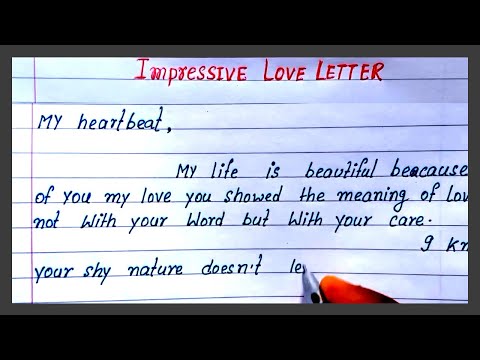 Impressive Love Letter
My heartbeat,
My life is beautiful beacause
of you my love you showed the meaning of Lov
not with your Word but With your care.
9 kn
your shy nature doesn't le